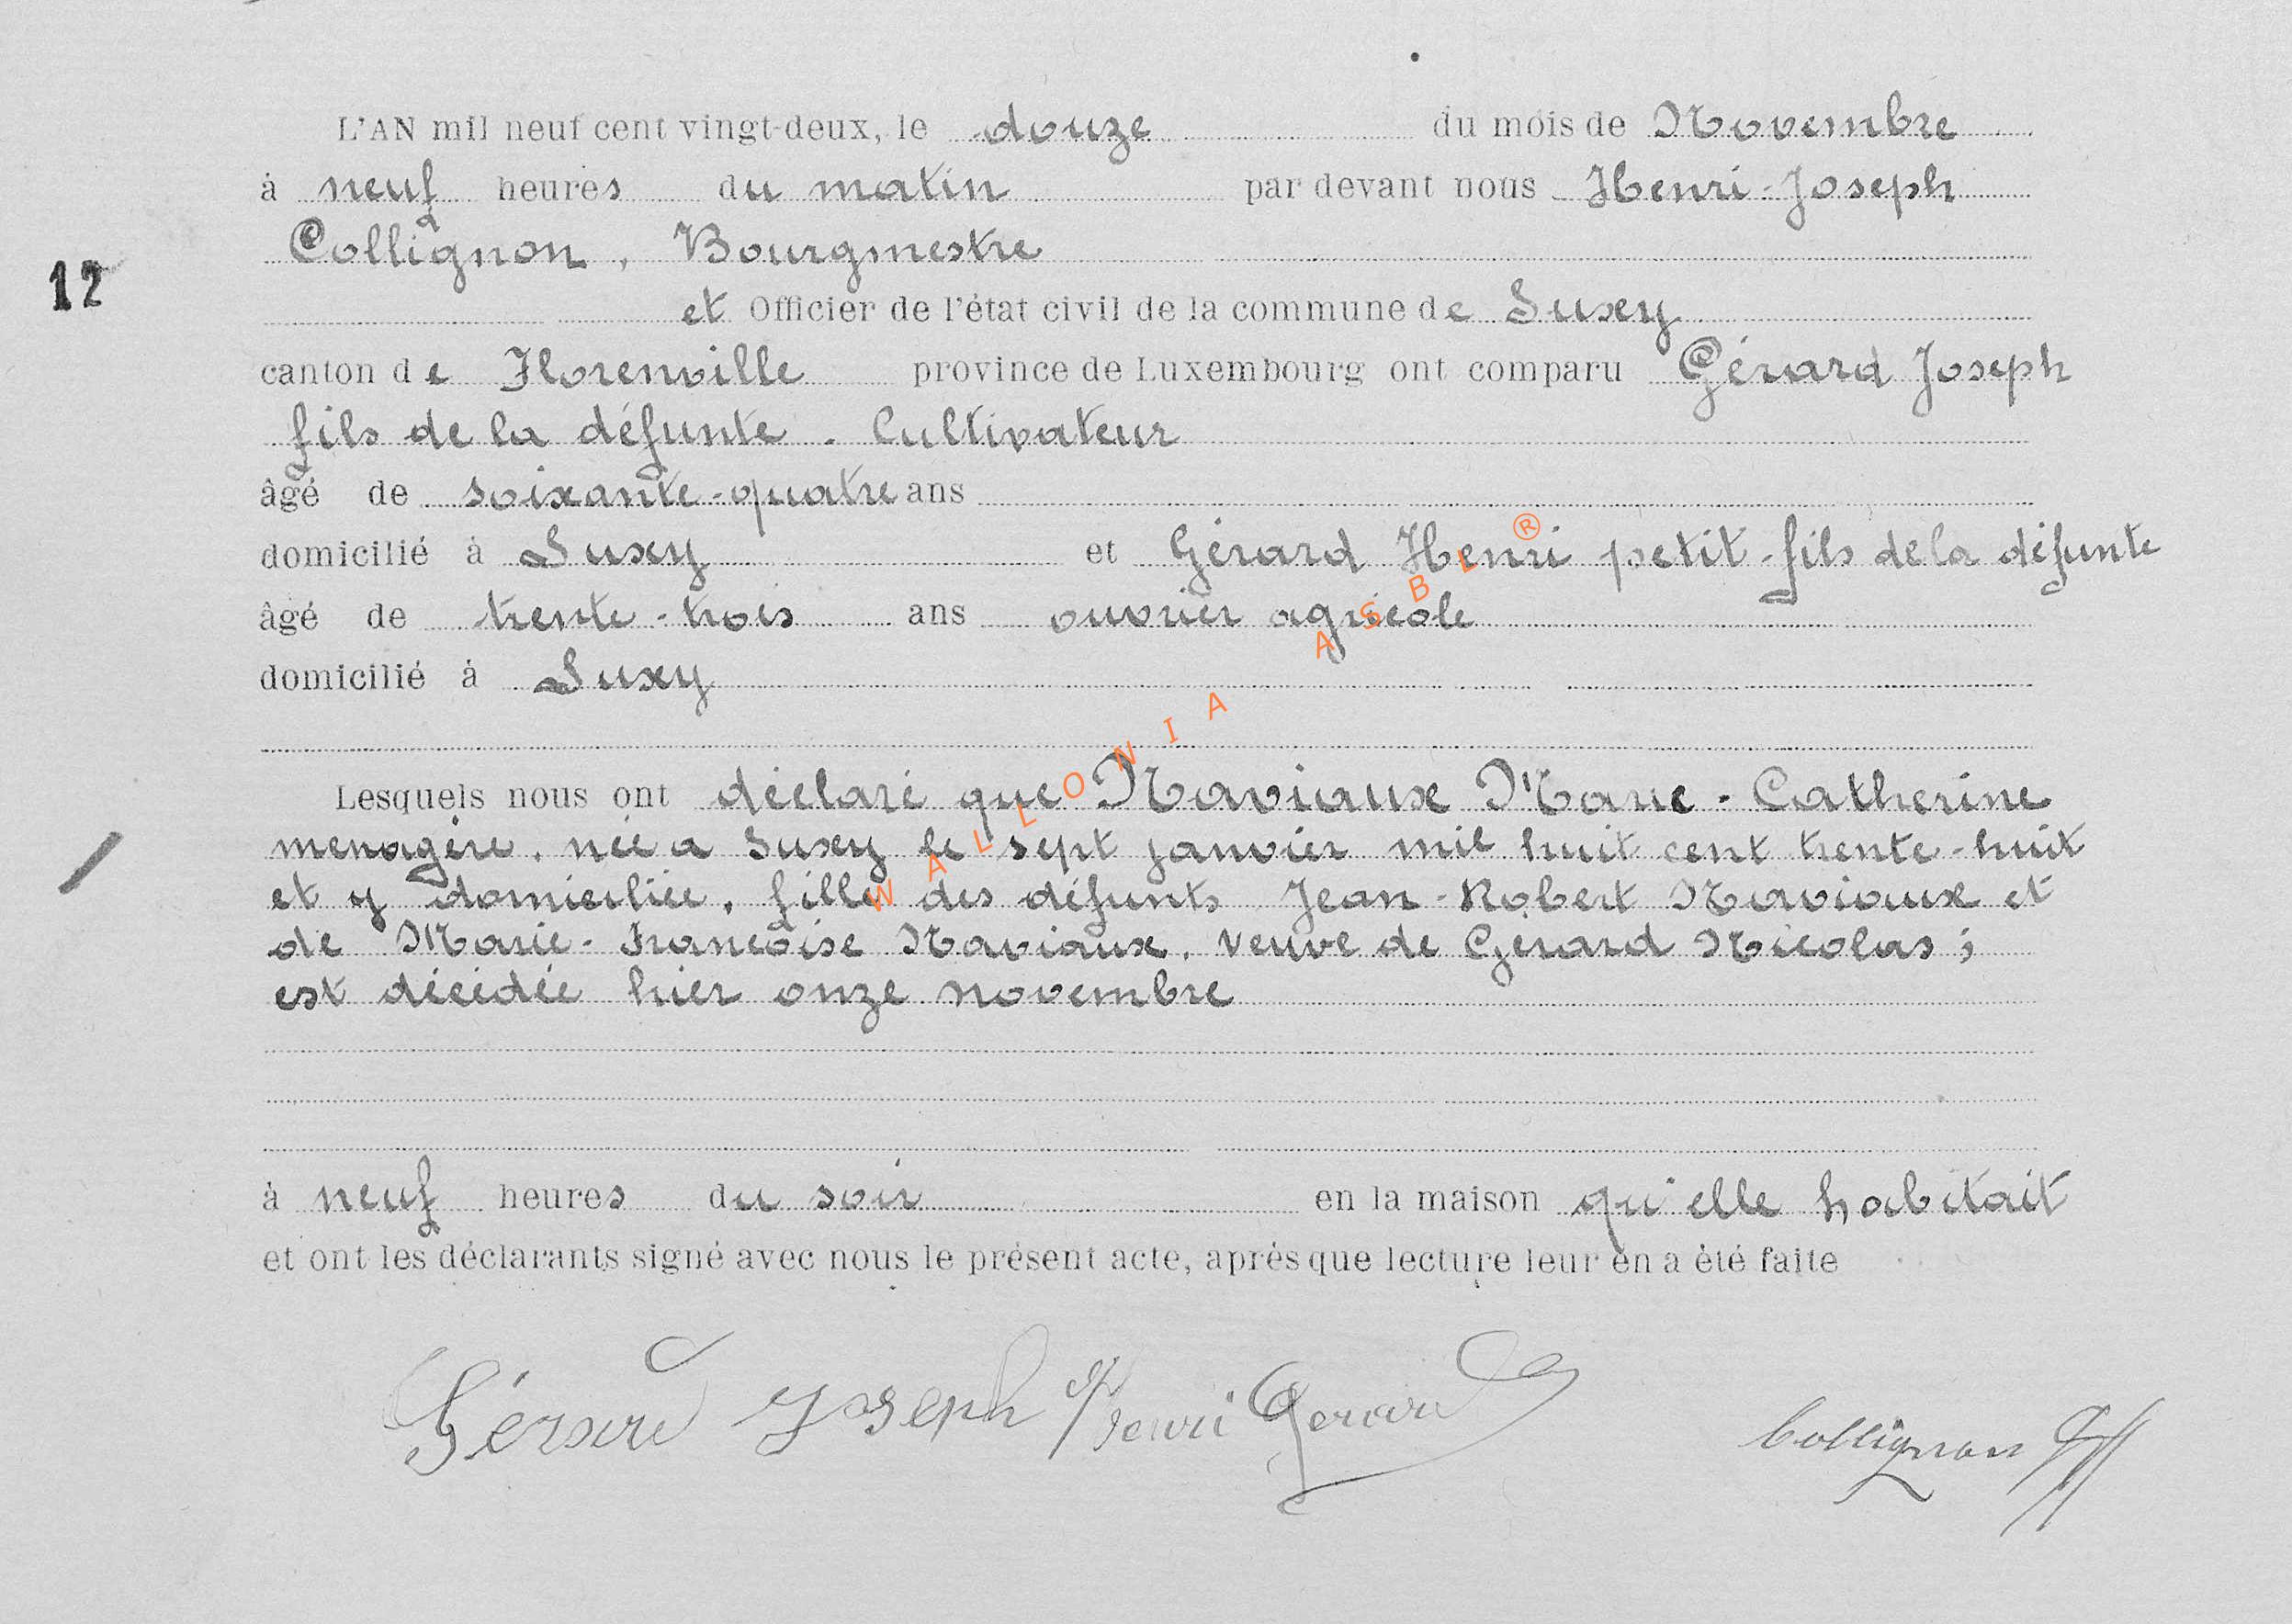 L'AN mil neuf cent vingt-deux, le douze du mois de Novembre
à neuf heures du matin par devant nous Henri-Joseph
Collignon, Bourgmestre
12
et Officier de l'état civil de la commune de Suxy
canton de Florenville province de Luxembourg ont comparu Gérard Joseph
fils de la défunte. Cultivateur
âgé de soixante-quatre ans
domicilié à Suxy et Gérard Henri petit-fils de la défunte
âgé de trente-trois ans ouvrier agricole
domicilié à Suxy
Lesquels nous ont déclaré que Naviaux Marie-Catherine
menagère. née a Suxy le sept janvier mil huit cent trente-huit
et y domiciliée, fille des défunts Jean-Robert Naviaux et
de Marie-Francoise Naviaux. Veuve de Gerard Nicolas;
est décédée hier onze novembre
à neuf heures du soir en la maison qu'elle habitait
et ont les déclarants signé avec nous le présent acte, après que lecture leur en a été faite
Gérard Joseph Henri Gerard Collignon
WALLONIA ASBL ®